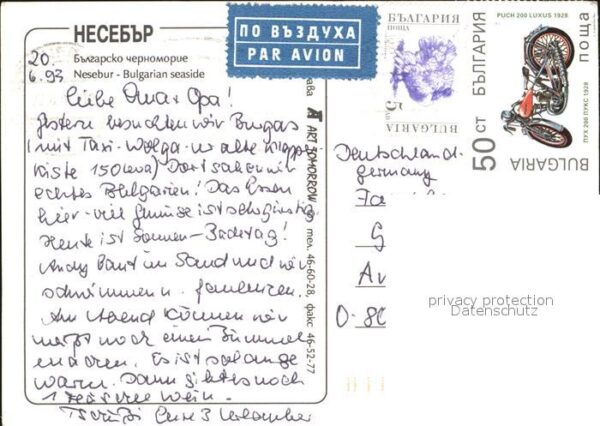 НЕСЕБЪР
20.
6.93
Българско черноморие
Nesebur - Bulgarian seaside
ПО ВЪЗДУХА
PAR AVION
БЪЛГАРИЯ
ПОЩА
5
BULGARIA
50 СТ БЪЛГАРИЯ
PUCH 200 LUXUS 1928
ПУХ 200 ЛУКС 1928
поща
BULGARIA
ART TOMORROW тел. 46-60-28, факс 46-52-77
Liebe Oma + Opa!
Gestern besuchten wir Burgas
(mit Taxi-Wolga-uralte Klapper-
kiste 150 Leva) Dort sahen wir
echtes Bulgarien! Das Essen
hier - viel Gemüse ist sehr günstig
Heute ist Sonnen-Badetag!
Andy baut im Sand und wir
schwimmen u. faulenzen.
Am Abend können wir
meist noch einen Bummel
machen. Es ist so lange
warm. Dann gibt es noch
1 Fläschle Wein.
Tschüß Eure 3
Deutschland -
Germany
Fa
G
Av
O-80
privacy protection
Datenschutz